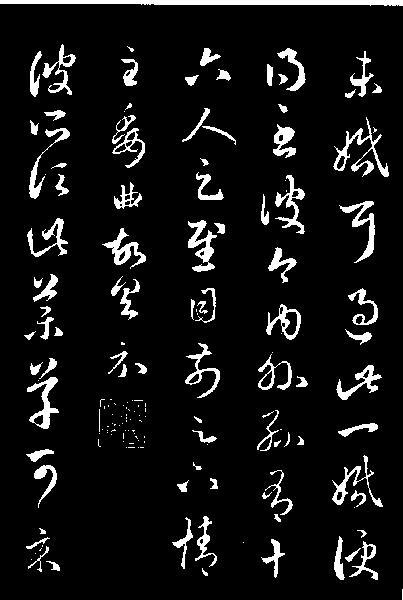 未婚耳過此一婚便
得至彼今内外孫有十
六人足慰目前足下情
至委曲故具示
彼所須此藥草可示